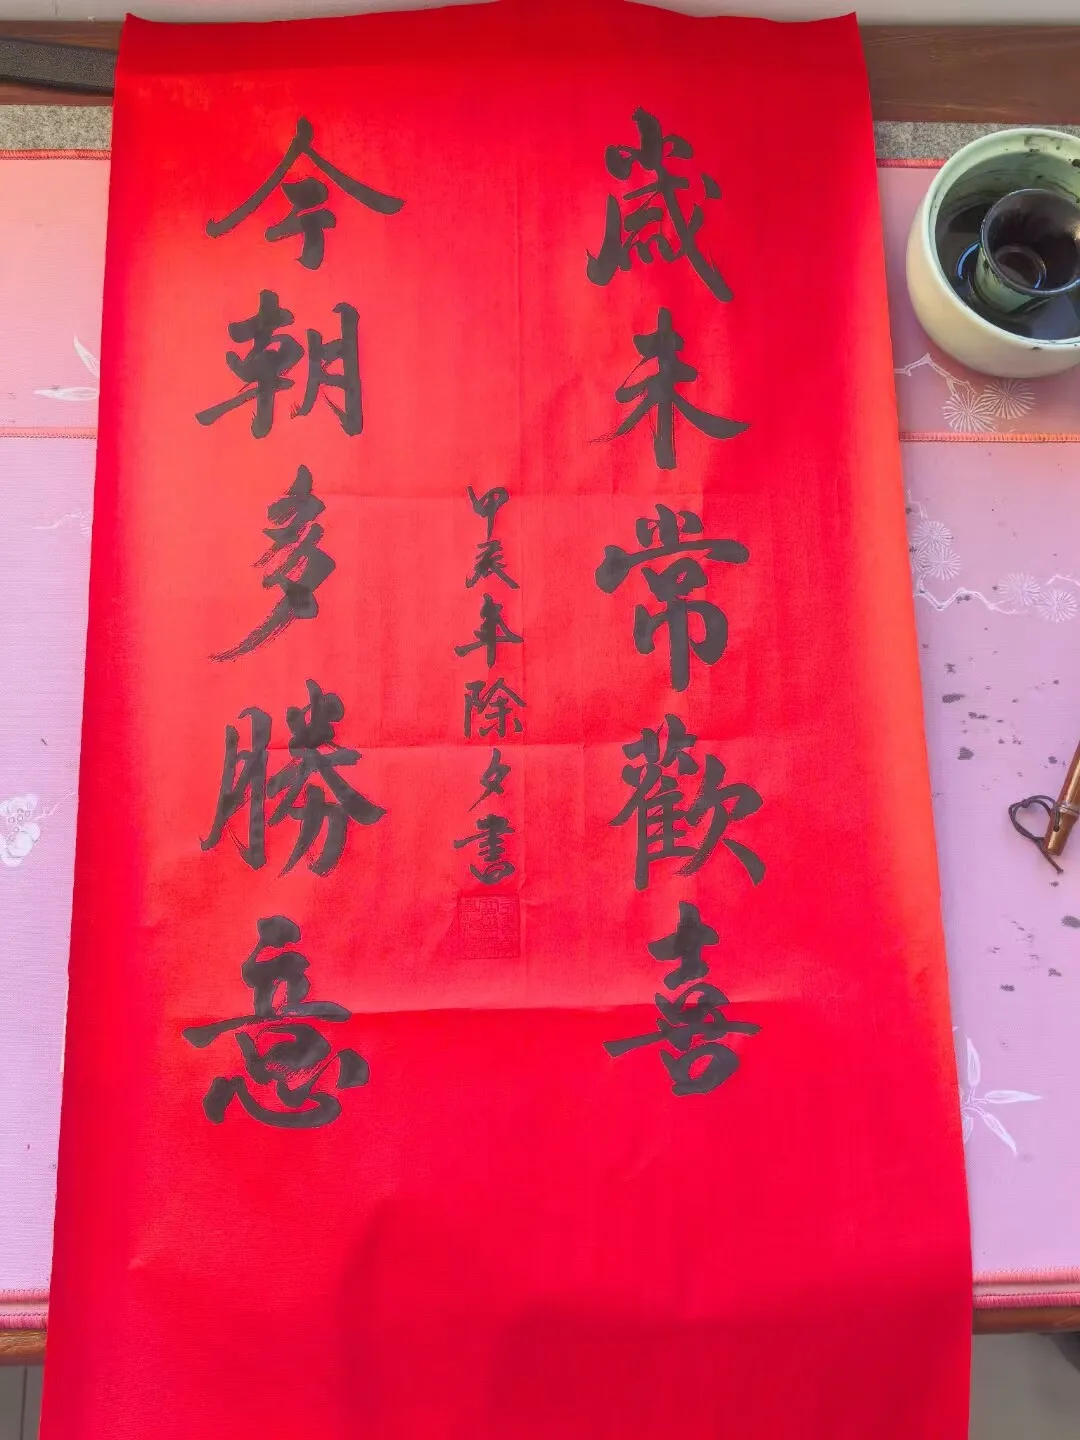 歲未常歡喜
今朝多勝意
甲辰年除夕書